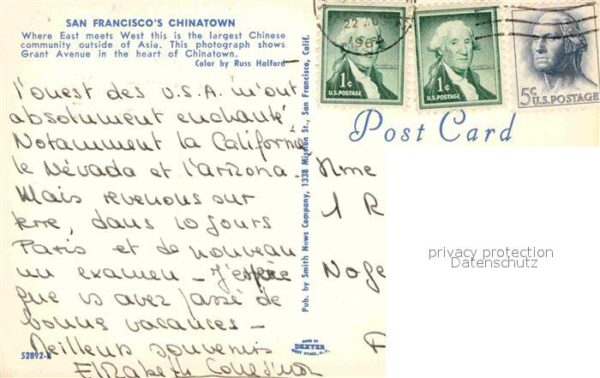 SAN FRANCISCO'S CHINATOWN
Where East meets West this is the largest Chinese
community outside of Asia. This photograph shows
Grant Avenue in the heart of Chinatown.
Color by Russ Halford
l'ouest des U.S.A. m'ont
absolument enchanté
Notamment la Californie
le Névada et l'Arizona.
Mais revenons sur
terre, dans 10 jours
Paris et de nouveau
un examen - J'espère
que vs avez passé de
bonnes vacances -
Meilleurs souvenirs
Elizabeth
52892-B
Pub. by Smith News Company, 1338 Mission St., San Francisco, Calif.
MADE BY
DEXTER
WEST NYACK, N.Y.
22 AU
1¢
U.S. POSTAGE
1¢
U.S. POSTAGE
5¢
U.S. POSTAGE
Post Card
Mme
1 R
Noge
F
privacy protection
Datenschutz